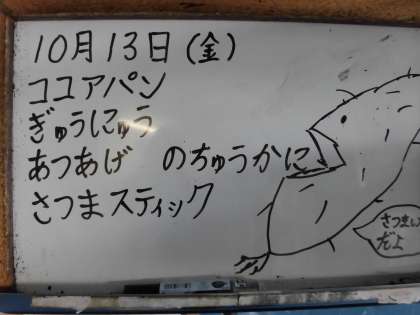 10月13日(金)
ココアパン
ぎゅうにゅう
あつあげ のちゅうかに
さつまスティック
さつまい
だよ